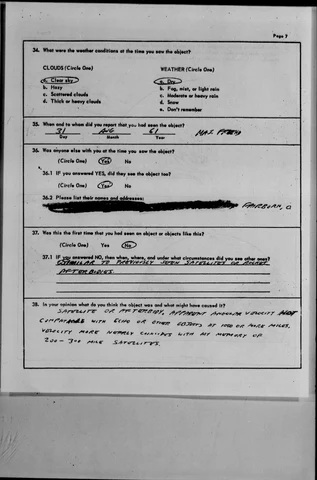 Page 7
34. What were the weather conditions at the time you saw the object?
CLOUDS (Circle One) WEATHER (Circle One)
a. Clear sky a. Dry
b. Hazy b. Fog, mist, or light rain
c. Scattered clouds c. Moderate or heavy rain
d. Thick or heavy clouds d. Snow
e. Don't remember
35. When and to whom did you report that you had seen the object?
31 AUG 61 MAJ.
Day Month Year
36. Was anyone else with you at the time you saw the object?
(Circle One) Yes No
36.1 If you answered YES, did they see the object too?
(Circle One) Yes No
36.2 Please list their names and addresses:
FAIRBORN, O
37. Was this the first time that you had seen an object or objects like this?
(Circle One) Yes No
37.1 If you answered NO, then when, where, and under what circumstances did you see other ones?
SIMILAR TO PREVIOUSLY SEEN SATELLITES OR
AFTERBODIES.
38. In your opinion what do you think the object was and what might have caused it?
SATELLITE OR AFTERBODY, APPARENT ANGULAR VELOCITY NOT
COMPARABLE WITH ECHO OR OTHER OBJECTS AT 1000 OR MORE MILES.
VELOCITY MORE NEARLY COINCIDES WITH MY MEMORY OF
200-300 MILE SATELLITES.